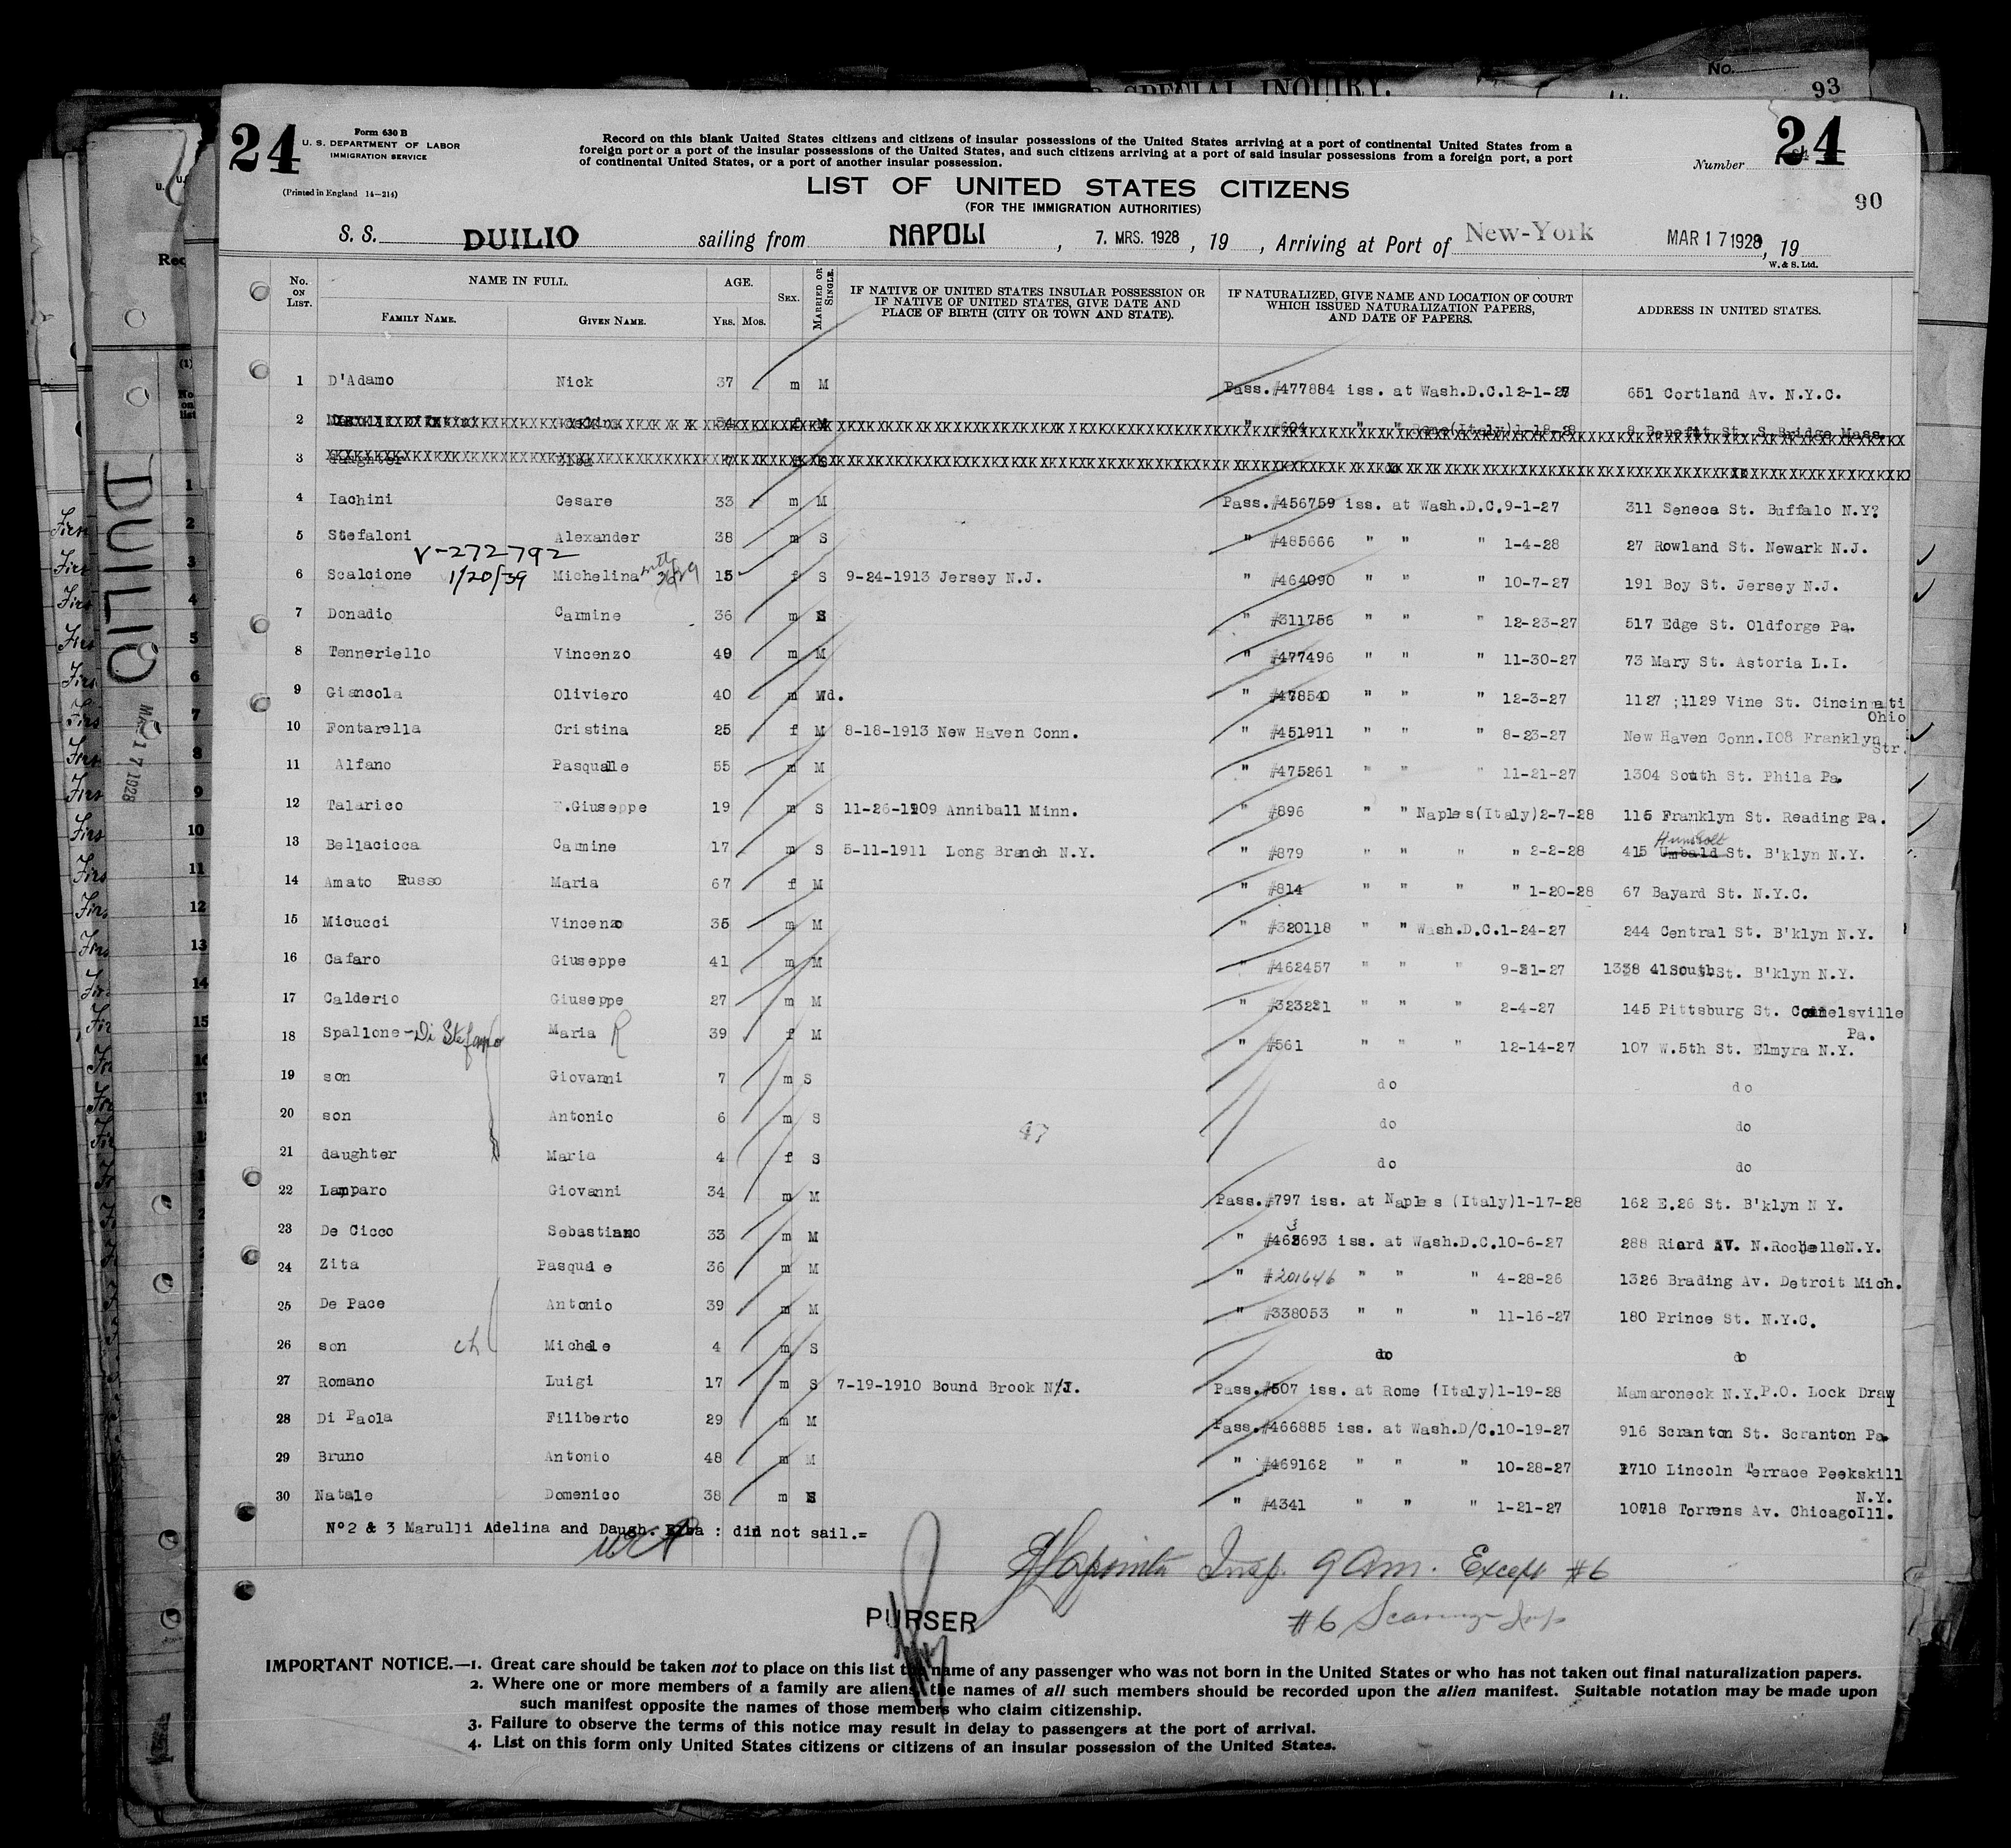 No. 93
SPECIAL INQUIRY.
24
Form 630 B
U. S. DEPARTMENT OF LABOR
IMMIGRATION SERVICE
(Printed in England 14—214)
Record on this blank United States citizens and citizens of insular possessions of the United States arriving at a port of continental United States from a
foreign port or a port of the insular possessions of the United States, and such citizens arriving at a port of said insular possessions from a foreign port, a port
of continental United States, or a port of another insular possession.
Number 24
90
LIST OF UNITED STATES CITIZENS
(FOR THE IMMIGRATION AUTHORITIES)
S. S. DUILIO sailing from NAPOLI, 7. MRS. 1928, 19 , Arriving at Port of New-York MAR 17 1928, 19
W. & S. Ltd.
No. ON LIST. NAME IN FULL. FAMILY NAME. GIVEN NAME. AGE. YRS. MOS. SEX. MARRIED OR SINGLE. IF NATIVE OF UNITED STATES INSULAR POSSESSION OR IF NATIVE OF UNITED STATES, GIVE DATE AND PLACE OF BIRTH (CITY OR TOWN AND STATE). IF NATURALIZED, GIVE NAME AND LOCATION OF COURT WHICH ISSUED NATURALIZATION PAPERS, AND DATE OF PAPERS. ADDRESS IN UNITED STATES.
1 D'Adamo Nick 37 m M Pass.#477884 iss. at Wash.D.C.12-1-27 651 Cortland Av. N.Y.C.
2 f M " #604 " " Rome(Italy)1-18-28 8 Benefit St. S.Bridge Mass.
3 daughter Elba 7 S do do
4 Iachini Cesare 33 m M Pass.#456759 iss. at Wash.D.C.9-1-27 311 Seneca St. Buffalo N.Y?
5 Stefaloni Alexander 38 m S " #485666 " " " 1-4-28 27 Rowland St. Newark N.J.
V-272792
6 Scalcione 1/20/39 Michelina 15 f S 9-24-1913 Jersey N.J. " #464090 " " " 10-7-27 191 Boy St. Jersey N.J.
7 Donadio Carmine 36 m S " #311756 " " " 12-23-27 517 Edge St. Oldforge Pa.
8 Tenneriello Vincenzo 49 m M " #477496 " " " 11-30-27 73 Mary St. Astoria L.I.
9 Giancola Oliviero 40 m Wd. " #478540 " " " 12-3-27 1127 ;1129 Vine St. Cincinnati
Ohio
10 Fontarella Cristina 25 f M 8-18-1913 New Haven Conn. " #451911 " " " 8-23-27 New Haven Conn.I08 Franklyn
Str.
11 Alfano Pasquale 55 m M " #475261 " " " 11-21-27 1304 South St. Phila Pa.
12 Talarico F.Giuseppe 19 m S 11-26-1909 Anniball Minn. " #896 " " Naples(Italy)2-7-28 115 Franklyn St. Reading Pa.
Humbolt
13 Bellacicca Camine 17 m S 5-11-1911 Long Branch N.Y. " #879 " " " " 2-2-28 415 Umbald St. B'klyn N.Y.
14 Amato Russo Maria 67 f M " #814 " " " " 1-20-28 67 Bayard St. N.Y.C.
15 Micucci Vincenzo 35 m M " #320118 " " Wash.D.C.1-24-27 244 Central St. B'klyn N.Y.
16 Cafaro Giuseppe 41 m M " #462457 " " " 9-21-27 1338 41South St. B'klyn N.Y.
17 Calderio Giuseppe 27 m M " #323221 " " " 2-4-27 145 Pittsburg St. Connelsville
Pa.
18 Spallone-Di Stefano Maria R 39 f M " #561 " " " 12-14-27 107 W.5th St. Elmyra N.Y.
19 son Giovanni 7 m S do do
20 son Antonio 6 m S 47 do do
21 daughter Maria 4 f S do do
22 Lamparo Giovanni 34 m M Pass.#797 iss. at Naples (Italy)1-17-28 162 E.26 St. B'klyn N Y.
3
23 De Cicco Sebastiano 33 m M " #463693 iss. at Wash.D.C.10-6-27 288 Riard AV. N.RochelleN.Y.
24 Zita Pasquale 36 m M " #201646 " " " 4-28-26 1326 Brading Av. Detroit Mich.
25 De Pace Antonio 39 m M " #338053 " " " 11-16-27 180 Prince St. N.Y.C.
26 son ch Michele 4 m S do do
27 Romano Luigi 17 m S 7-19-1910 Bound Brook N/J. Pass.#507 iss. at Rome (Italy)1-19-28 Mamaroneck N.Y.P.O. Lock Draw
I
28 Di Paola Filiberto 29 m M Pass.#466885 iss. at Wash.D/C.10-19-27 916 Scranton St. Scranton Pa.
29 Bruno Antonio 48 m M " #469162 " " " 10-28-27 1710 Lincoln Terrace Peekskill
N.Y.
30 Natale Domenico 38 m S " #4341 " " " 1-21-27 10718 Torrens Av. ChicagoIll.
N°2 & 3 Marulli Adelina and Daugh. Elba : did not sail.=
Insp. 9 am. Except #6
#6
PURSER
IMPORTANT NOTICE.—1. Great care should be taken not to place on this list the name of any passenger who was not born in the United States or who has not taken out final naturalization papers.
2. Where one or more members of a family are aliens, the names of all such members should be recorded upon the alien manifest. Suitable notation may be made upon
such manifest opposite the names of those members who claim citizenship.
3. Failure to observe the terms of this notice may result in delay to passengers at the port of arrival.
4. List on this form only United States citizens or citizens of an insular possession of the United States.
DUILIO
MAR 17 1928